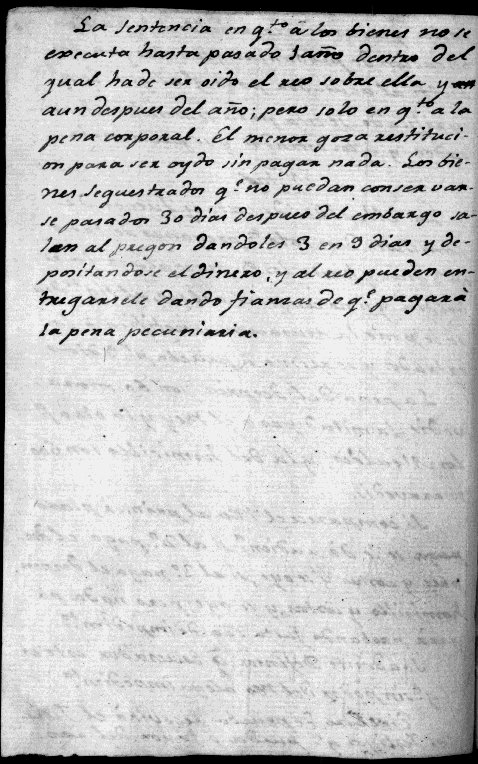 La sentencia en q.to â los bienes no se
executa hasta pasado 1 año dentro del
qual hade ser oido el reo sobre ella y
aun despues del año; pero solo en q.to a la
pena corporal. El menor goza restituci-
on para ser oydo sin pagar nada. Los bie-
nes sequestrados q.e no puedan conservar-
se pasados 30 dias despues del embargo sa-
len al pregon dandoles 3 en 9 dias y de-
positandose el dinero, y al reo pueden en-
tregarsele dando fianzas de q.e pagarà
la pena pecuniaria.